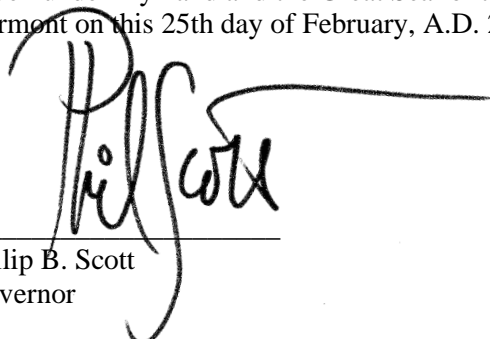 ermont on this 25th day of February, A.D. 2
Phil Scott
ilip B. Scott
vernor